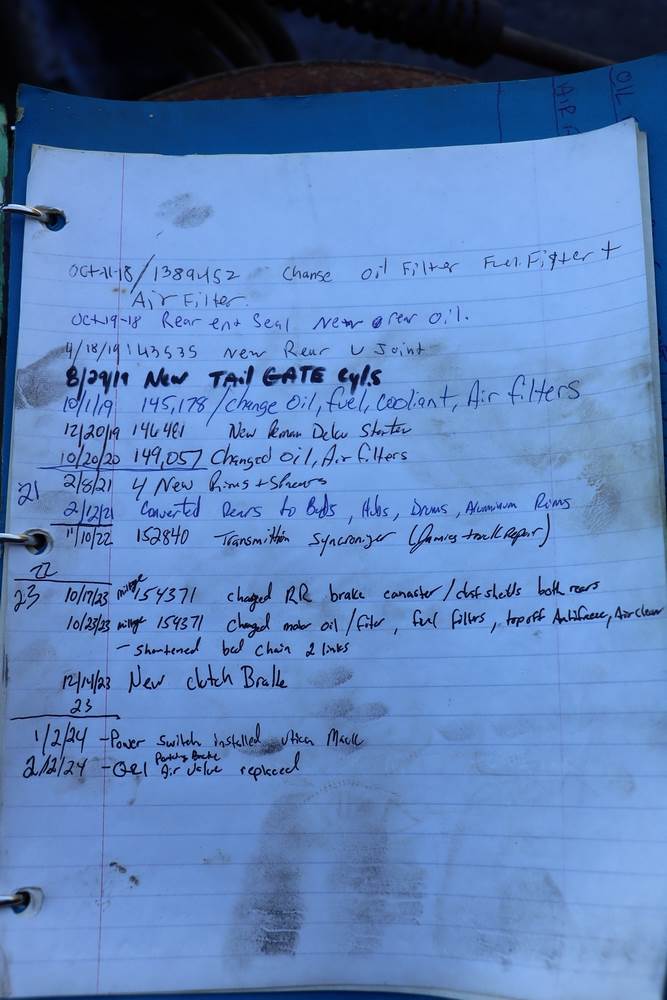 OIL
AIR
Oct-11-18/1389452 Change Oil Filter Fuel Filter +
Air Filter.
Oct-19-18 Rear end Seal New rear oil.
4/18/19 143535 New Rear U Joint
8/29/19 New TAil GATE Cyls
10/1/19 145,178/change Oil, fuel, cooliant, Air filters
12/20/19 146481 New Reman Delco Starter
10/20/20 149,057 Changed oil, Air filters
21 2/8/21 4 New Rims +
2/12/21 Converted Rears to Buds, Hubs, Drums, Aluminum Rims
11/10/22 152840 Transmittion Syncronizer (Jamies truck Repair)
22
23 10/17/23 milage 154371 changed RR brake canaster/dust shields both rears
10/23/23 milage 154371 changed motor oil/filter, fuel filters, top off Antifreeze, Air clean
- shortened bed chain 2 links
12/14/23 New clutch Brake
23
1/2/24 -Power switch installed Utica Mack
2/2/24 - Parking Brake Air Valve replaced